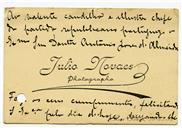 Ao valente caudilho e illustre chefe
do partido republicano portuguez
Exmo Snr Dantas Antonio José d'Almeida
Julio Novaes
Photographo
Faz os seus cumprimentos, felicitando
S. Exa pelo dia d'hoje, desejando-lhe